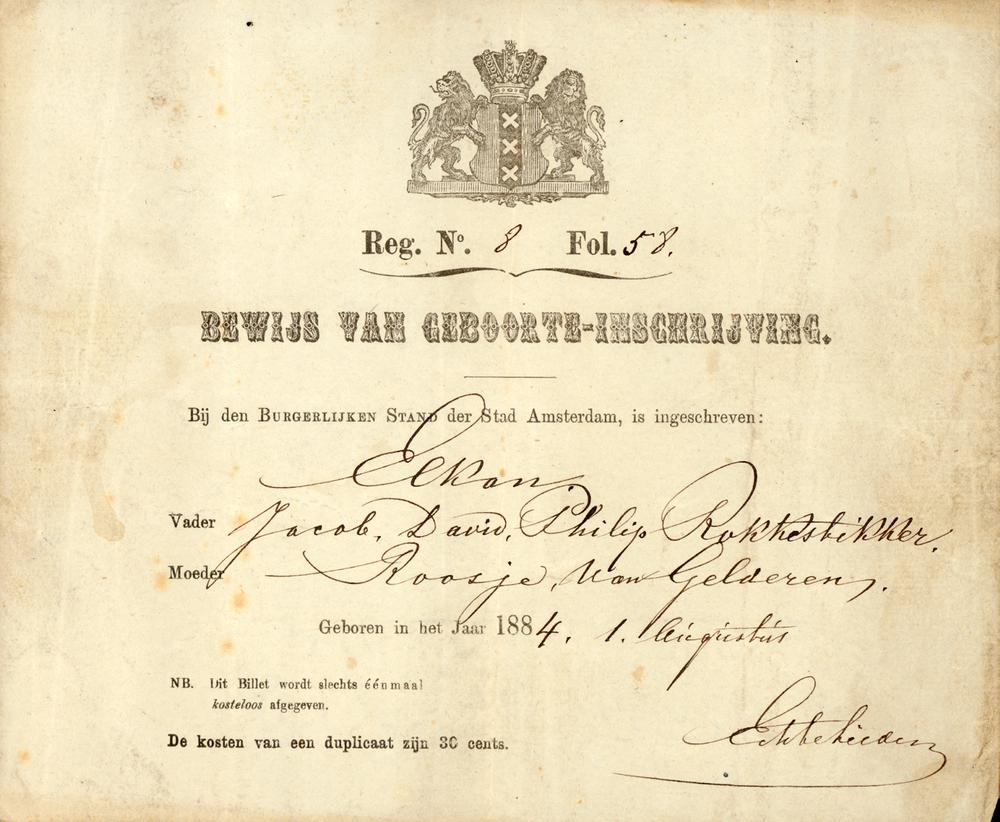 Reg. No. 8 Fol. 58.
BEWIJS VAN GEBOORTE-INSCHRIJVING.
Bij den BURGERLIJKEN STAND der Stad Amsterdam, is ingeschreven:
Elkan,
Vader Jacob, David, Philip
Moeder Roosje, Van Gelderen,.
Geboren in het Jaar 1884. 1. Augustus
NB. Dit Billet wordt slechts éénmaal
kosteloos afgegeven.
De kosten van een duplicaat zijn 30 cents.